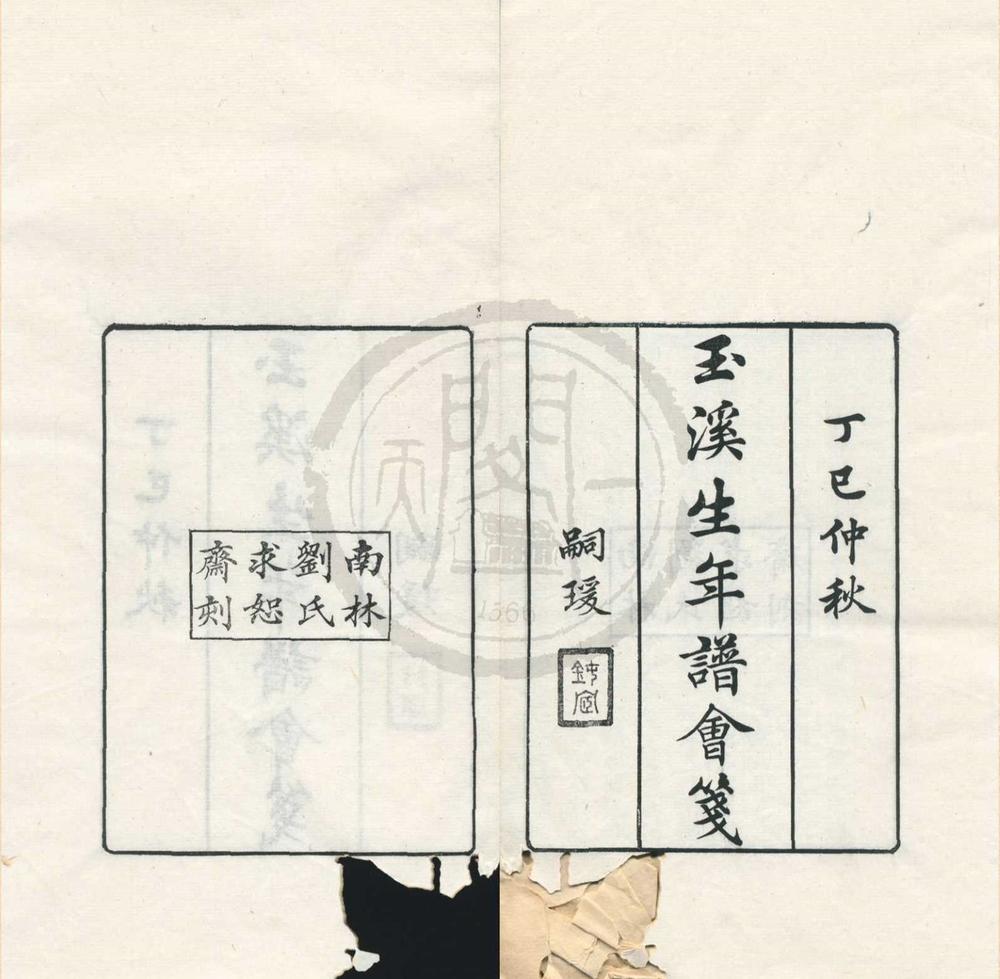 丁巳仲秋
玉溪生年譜會箋
嗣瑗
鈍宧
南林
劉氏
求恕
齋刻
天一閣
1566